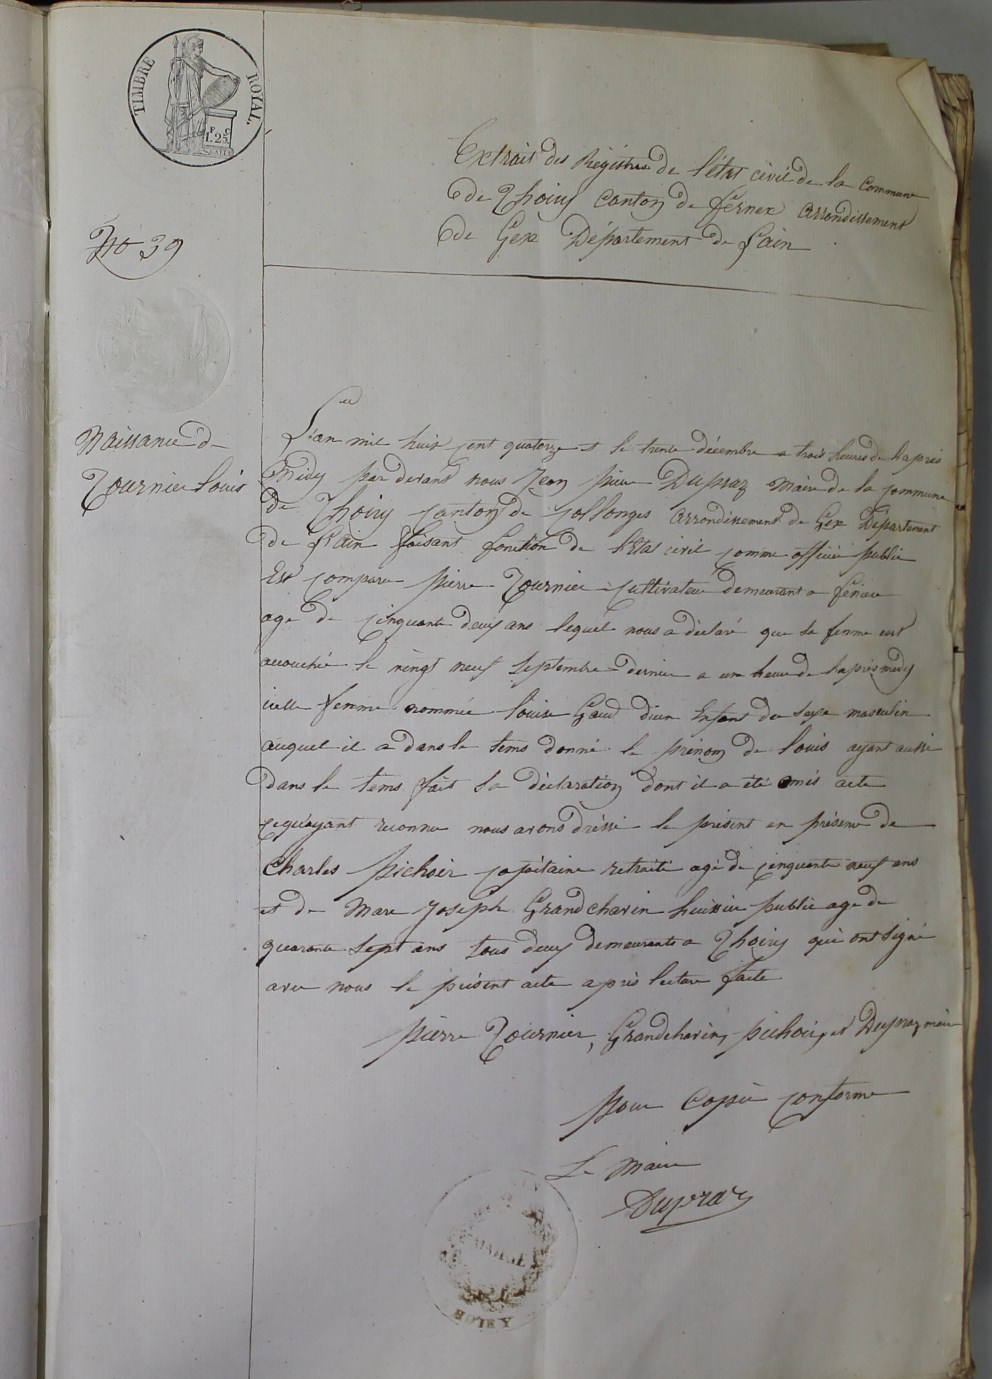 TIMBRE ROYAL.
1.F 25 C
Extrait des Régistres de l'état civil de la Commune
de Thoiry Canton de Fernex arrondissement
de Gex Département de l'ain
No 39
Naissance de
Tournier Louis
L'an mil huit cent quatorze et le trente décembre a trois heures de l'après
Midy par devant nous Jean pierre Dupraz Maire de la commune
de Thoiry canton de Collonges arrondissement de Gex Département
de l'ain faisant fonction de l'Etat civil comme officier public
Est comparu pierre Tournier cultivateur demeurant a
agé de cinquante deux ans lequel nous a déclaré que sa femme est
accouchée le vingt neuf Septembre dernier a une heure de l'après medy
icelle femme nommée Louise Gaud d'un Enfant du sexe masculin
auquel il a dans le tems donné le prénom de Louis ayant aussi
dans le tems fait sa déclaration dont il a été omis acte
ce qu'ayant reconnu nous avons dréssé le présent en présence de
Charles Pichoir capitaine retraité agé de cinquante neuf ans
et de Marc Joseph Grandchavin huissier public age de
quarante sept ans tous deux demeurants a Thoiry qui ont signé
avec nous le présent acte après lecture faite
pierre Tournier, Grandchavin, pichoir, et Dupraz maire
pour Copie conforme
Le Maire
Dupraz
MAIRIE